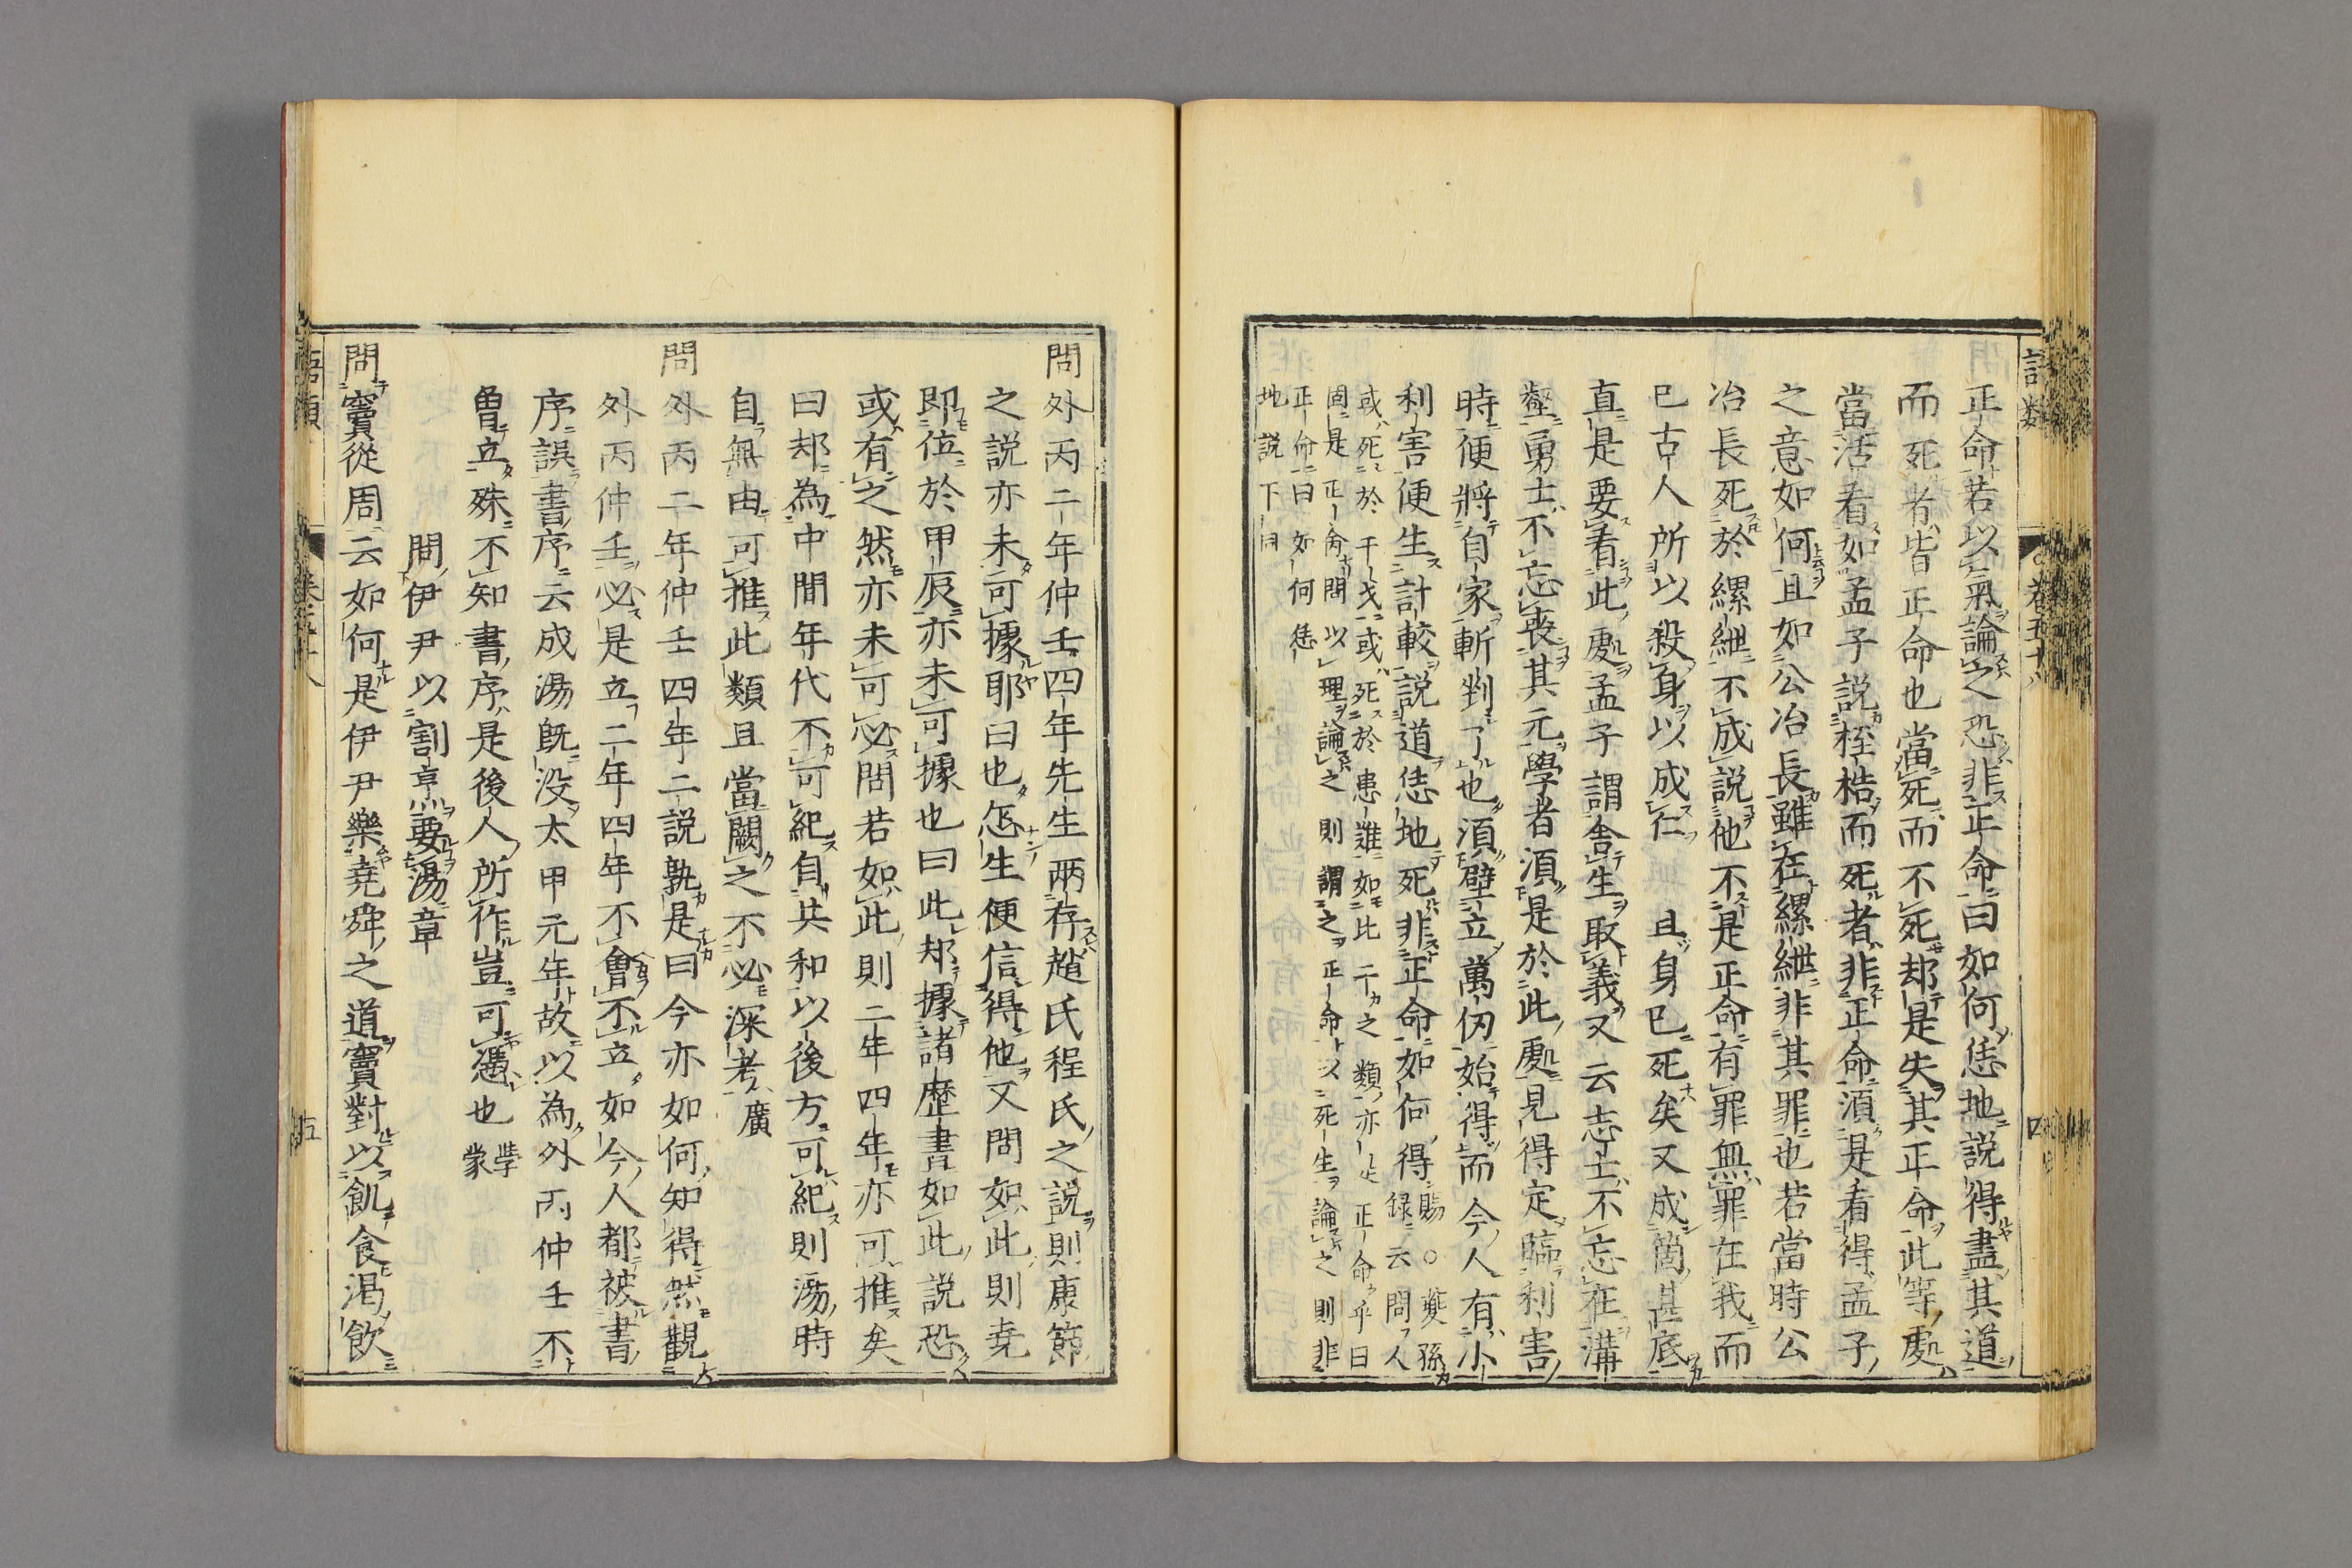 正命若以氣論之恐非正命曰如何恁地説得盡其道
而死者皆正命也當死而不死却是失其正命此等處
當活看如孟子説桎梏而死者非正命須是看得孟子
之意如何且如公冶長雖在縲紲非其罪也若當時公
冶長死於縲紲不成説他不是正命有罪無罪在我而
已古人所以殺身以成仁且身已死矣又成箇甚底
直是要看此處孟子謂舎生取義又云志士不忘在溝
壑勇士不忘喪其元學者須是於此處見得定臨利害
時便將自家斬剉了也須壁立萬仞始得而今人有小
利害便生計較説道恁地死非正命如何得賜○夔孫
録云問人
或死於干戈或死於患難如比干之類亦是正命乎曰
固是正命問以理論之則謂之正命以死生論之則非
正命曰如何恁
地説下同
語類
卷五十八
四
問外丙二年仲壬四年先生兩存趙氏程氏之説則康節
之説亦未可據耶曰也怎生便信得他又問如此則堯
即位於甲辰亦未可據也曰此却據諸歴書如此説恐
或有之然亦未可必問若如此則二年四年亦可推矣
曰却為中間年代不可紀自共和以後方可紀則湯時
自無由可推此類且當闕之不必深考廣
問外丙二年仲壬四年二説孰是曰今亦如何知得然觀
外丙仲壬必是立二年四年不曾不立如今人都被書
序誤書序云成湯既没太甲元年故以為外丙仲壬不
曾立殊不知書序是後人所作豈可慿也㽦
學蒙
問伊尹以割烹要湯章
問竇從周云如何是伊尹樂堯舜之道竇對以飢食渇飲
語類
卷五十八
五